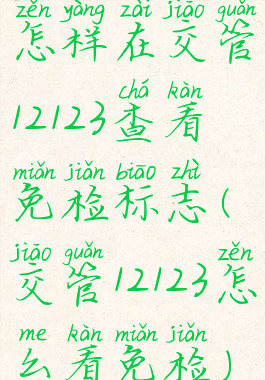 zěn yàng zài jiāo guǎn
怎样在交管
chá kàn
12123查看
miǎn jiǎn biāo zhì
免检标志(
jiāo guǎn zěn
交管12123怎
me kàn miǎn jiǎn
么看免检)